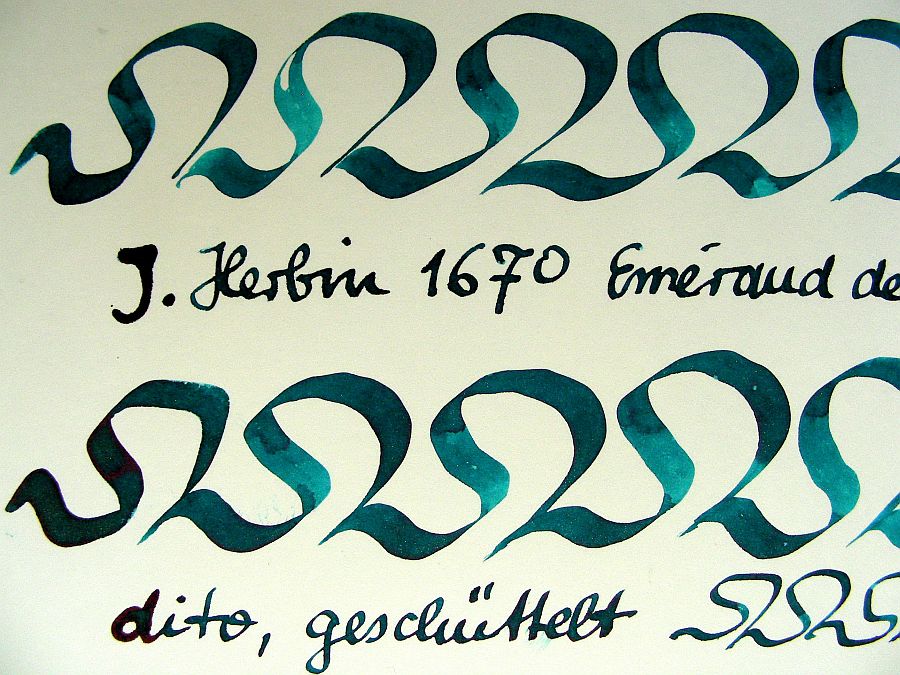 J. Herbin 1670 Eméraud de
dito, geschüttelt